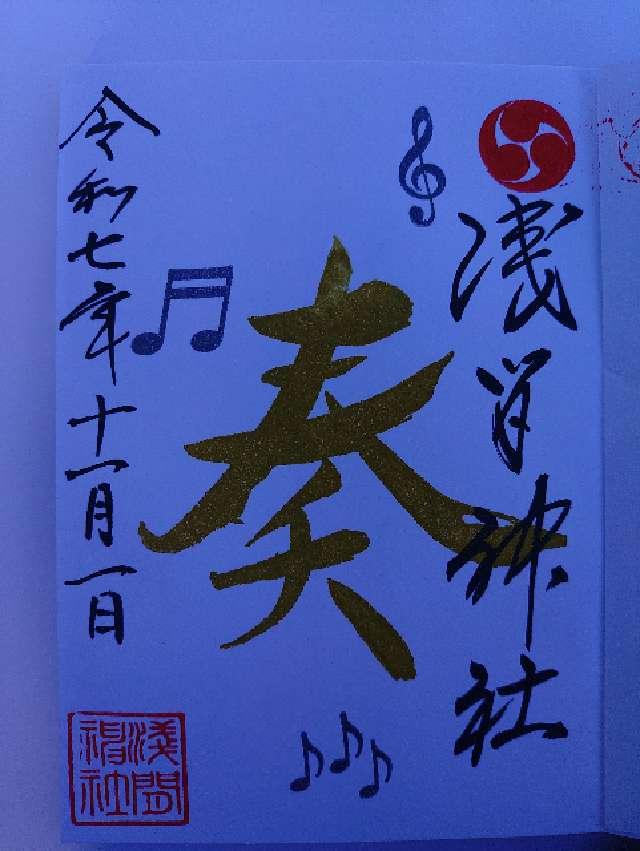 浅間神社
奏
令和七年十一月一日
浅間
神社